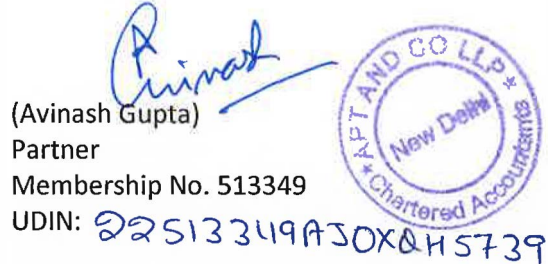 Avinash
(Avinash Gupta)
Partner
Membership No. 513349
UDIN: 22513349AJOXQH5739
APT AND CO LLP
New Delhi
* Chartered Accountants *